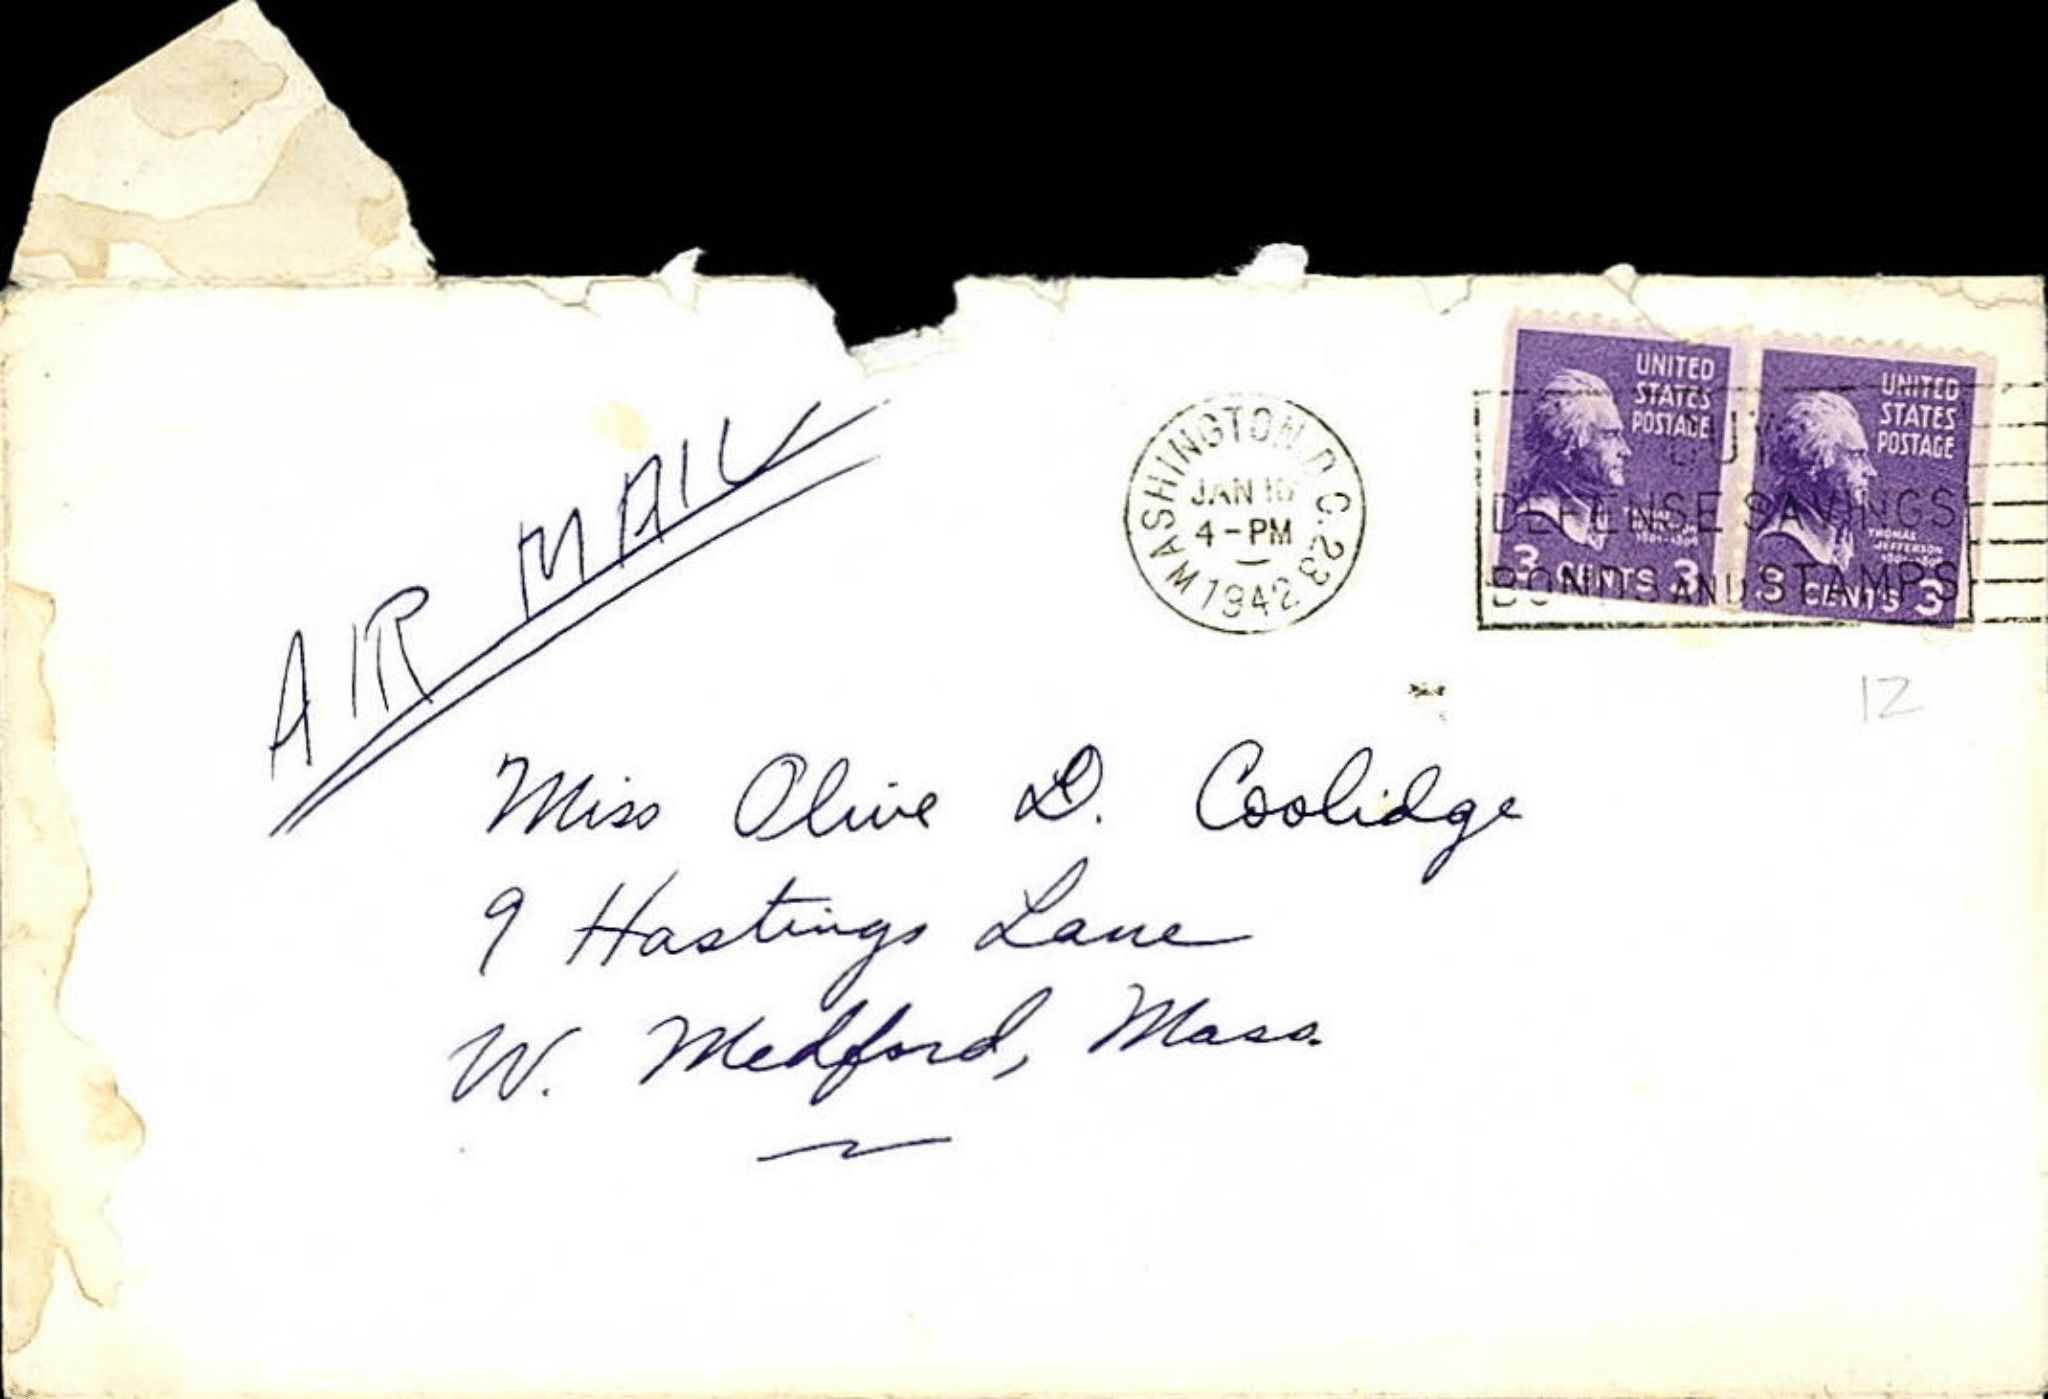 AIR MAIL
WASHINGTON, D.C. 23
JAN 16
4-PM
1942
UNITED
STATES
POSTAGE
3 CENTS 3
UNITED
STATES
POSTAGE
THOMAS
JEFFERSON
3 CENTS 3
BUY
DEFENSE SAVINGS
BONDS AND STAMPS
12
Miss Olive D. Coolidge
9 Hastings Lane
W. Medford, Mass.